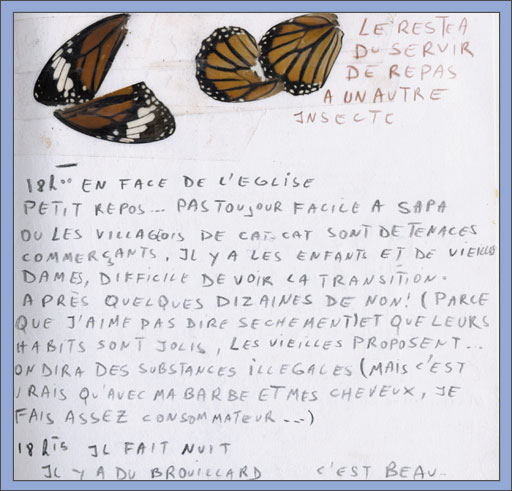 LE RESTE A
DU SERVIR
DE REPAS
A UN AUTRE
INSECTE
18h00 EN FACE DE L'EGLISE
PETIT REPOS... PAS TOUJOUR FACILE A SAPA
OU LES VILLAGEOIS DE CAT-CAT SONT DE TENACES
COMMERÇANTS, IL Y A LES ENFANTS ET DE VIEILLES
DAMES, DIFFICILE DE VOIR LA TRANSITION.
APRÈS QUELQUES DIZAINES DE NON! (PARCE
QUE J'AIME PAS DIRE SECHEMENT) ET QUE LEURS
HABITS SONT JOLIS, LES VIEILLES PROPOSENT...
ON DIRA DES SUBSTANCES ILLEGALES (MAIS C'EST
VRAIS QU'AVEC MA BARBE ET MES CHEVEUX, JE
FAIS ASSEZ CONSOMMATEUR...)
18h15 IL FAIT NUIT
IL Y A DU BROUILLARD C'EST BEAU..